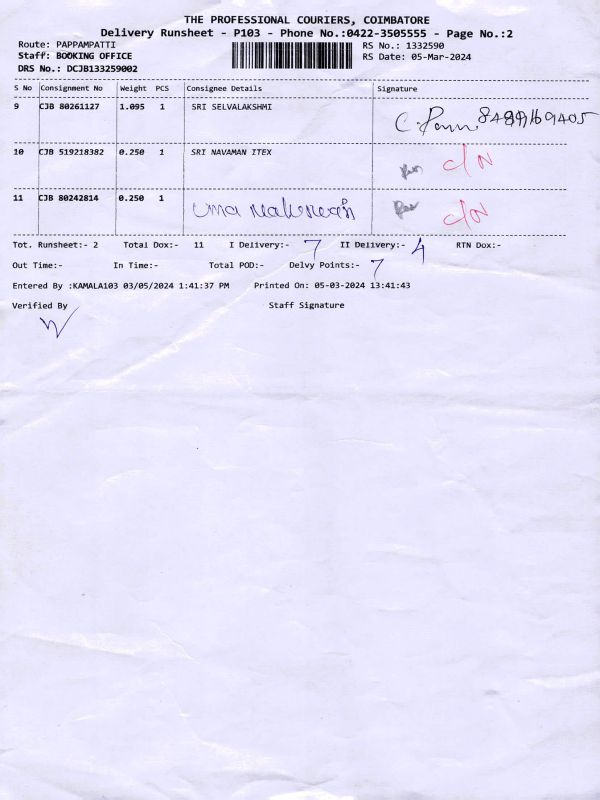 THE PROFESSIONAL COURIERS, COIMBATORE
Delivery Runsheet - P103 - Phone No.:0422-3505555 - Page No.:2
Route: PAPPAMPATTI RS No.: 1332590
Staff: BOOKING OFFICE RS Date: 05-Mar-2024
DRS No.: DCJB133259002
S No Consignment No Weight PCS Consignee Details Signature
9 CJB 80261127 1.095 1 SRI SELVALAKSHMI
10 CJB 519218382 0.250 1 SRI NAVAMAN ITEX C/N
11 CJB 80242814 0.250 1 uma C/N
Tot. Runsheet:- 2 Total Dox:- 11 I Delivery:- 7 II Delivery:- 4 RTN Dox:-
Out Time:- In Time:- Total POD:- Delvy Points:- 7
Entered By :KAMALA103 03/05/2024 1:41:37 PM Printed On: 05-03-2024 13:41:43
Verified By Staff Signature